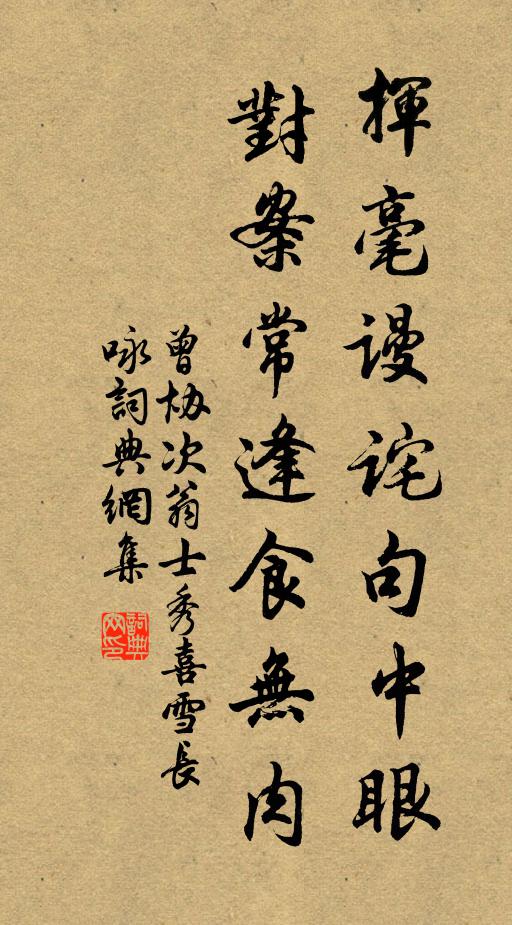 揮毫謾詫句中眼
對案常逢食無肉
曾協次翁士秀喜雪長
咏詞典網集
詞典網印